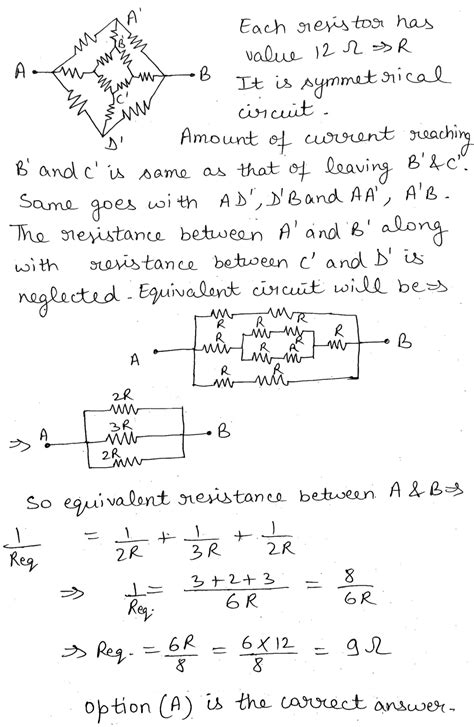 A'
Each resistor has
B'
value 12 Ω ⇒ R
A
B
It is symmetrical
C'
circuit.
D'
Amount of current reaching
B' and C' is same as that of leaving B' & C'.
Same goes with AD', D'B and AA', A'B.
The resistance between A' and B' along
with resistance between C' and D' is
neglected. Equivalent circuit will be ⇒
R R
R R R R
A B
R R
R R
2R
⇒ A 3R B
2R
So equivalent resistance between A & B ⇒
1/Req = 1/2R + 1/3R + 1/2R
⇒ 1/Req. = 3+2+3/6R = 8/6R
⇒ Req. = 6R/8 = 6×12/8 = 9Ω
option (A) is the correct answer.